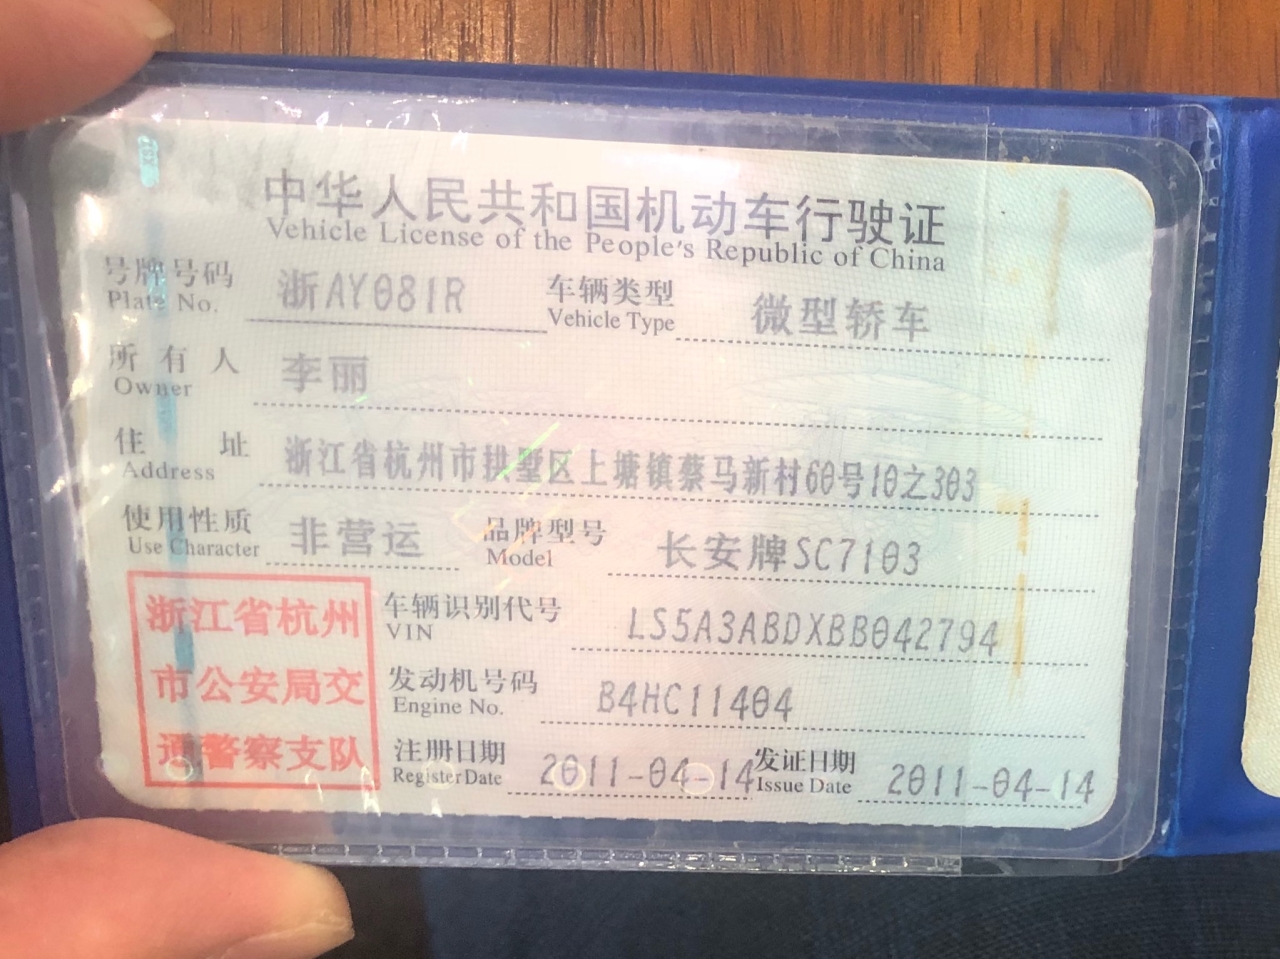 中华人民共和国机动车行驶证
Vehicle License of the People's Republic of China
号牌号码 浙AY081R 车辆类型 微型轿车
Plate No. Vehicle Type
所有人 李丽
Owner
住址 浙江省杭州市拱墅区上塘镇蔡马新村60号10之303
Address
使用性质 非营运 品牌型号 长安牌SC7103
Use Character Model
车辆识别代号 LS5A3ABDXBB042794
VIN
发动机号码 B4HC11404
Engine No.
注册日期 2011-04-14 发证日期 2011-04-14
Register Date Issue Date
浙江省杭州
市公安局交
通警察支队